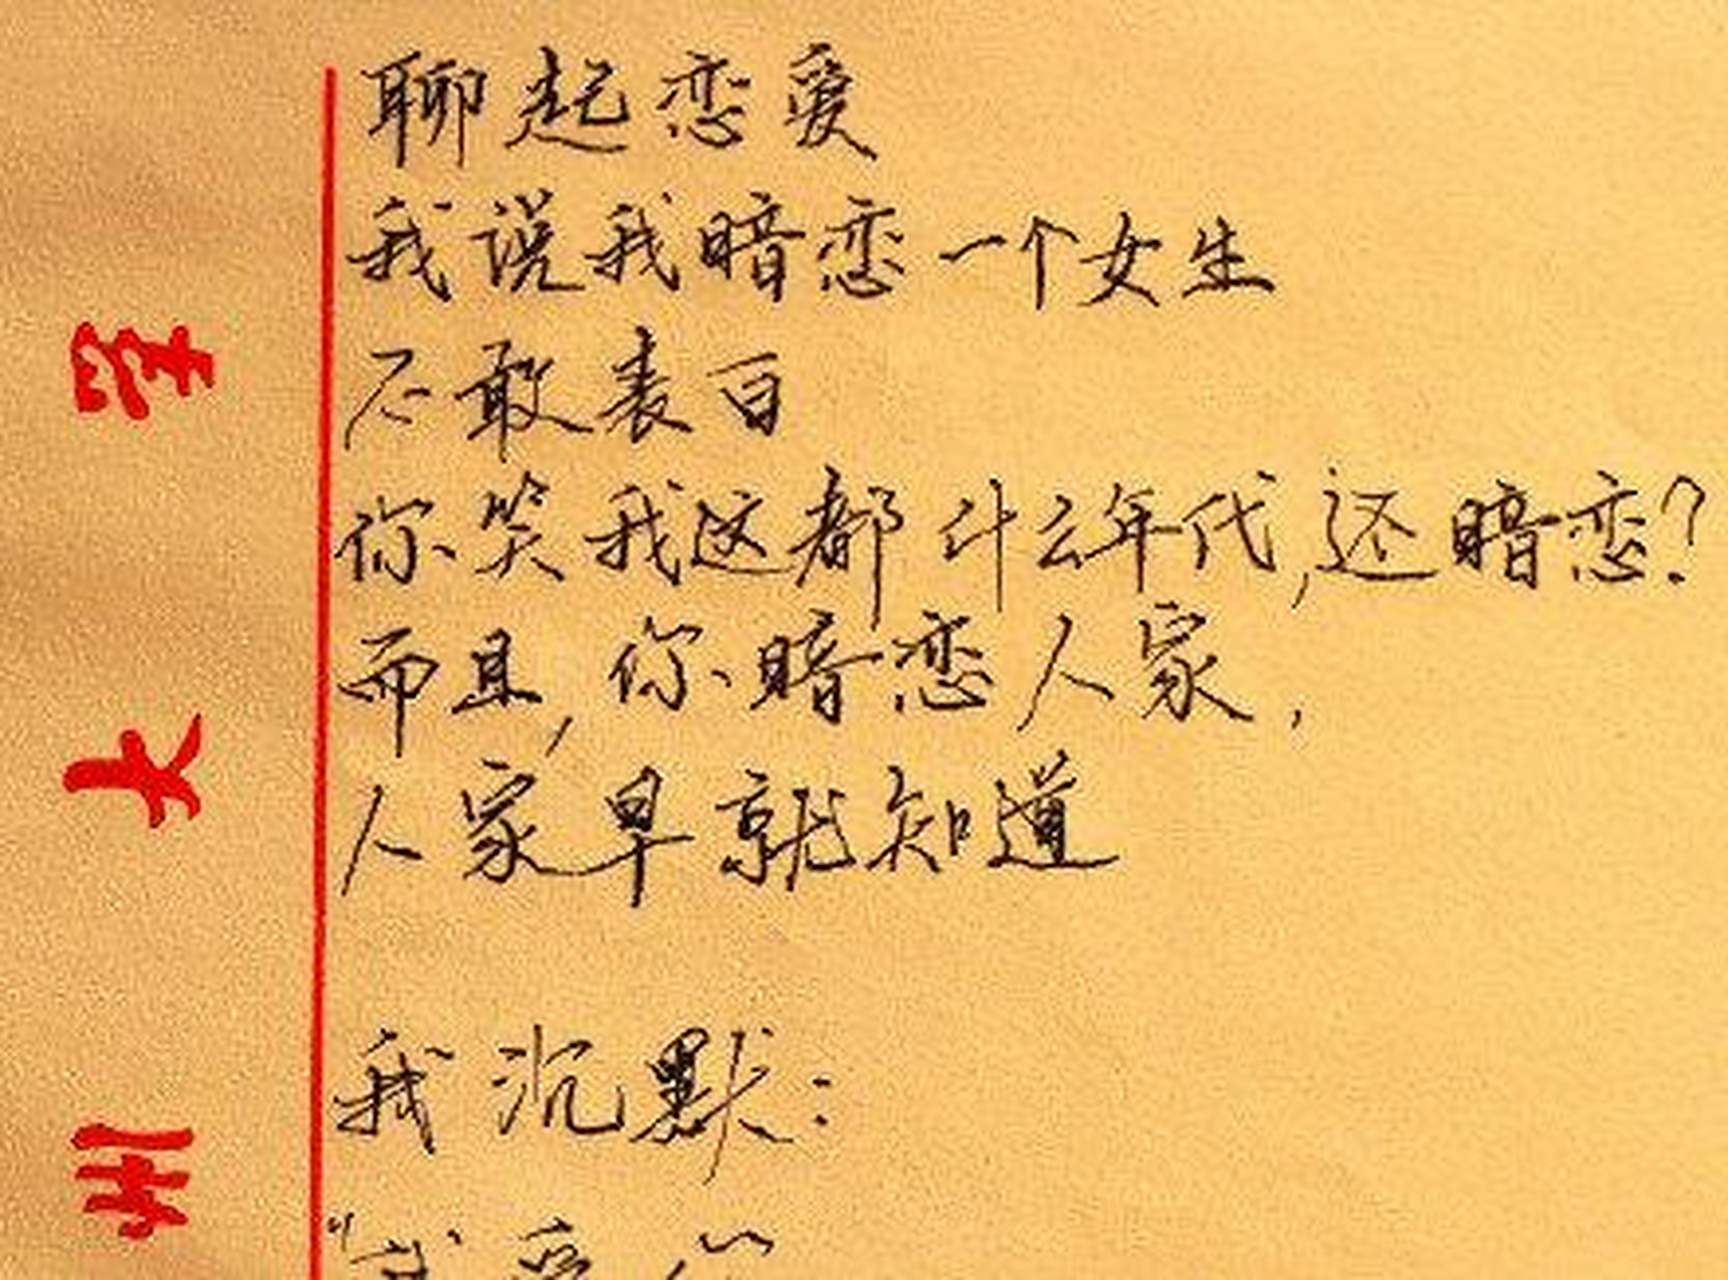 聊起恋爱
我说我暗恋一个女生
不敢表白
你笑我这都什么年代,还暗恋?
而且,你暗恋人家,
人家早就知道
我沉默:
"我
大